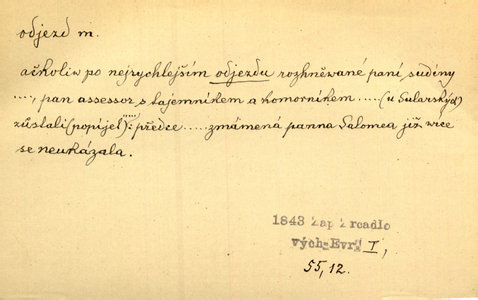 odjezd m.
ačkoliw po nejrychlejším odjezdu rozhněwané paní sudíny
...., pan assessor s tajemníkem a komorníkem ..... (u Sularských)
zůstali (popíjel"""): předce ..... zmámená panna Salomea již wíce
se neukázala.
1843 Zap Zrcadlo
vých-Evr. I,
55, 12.